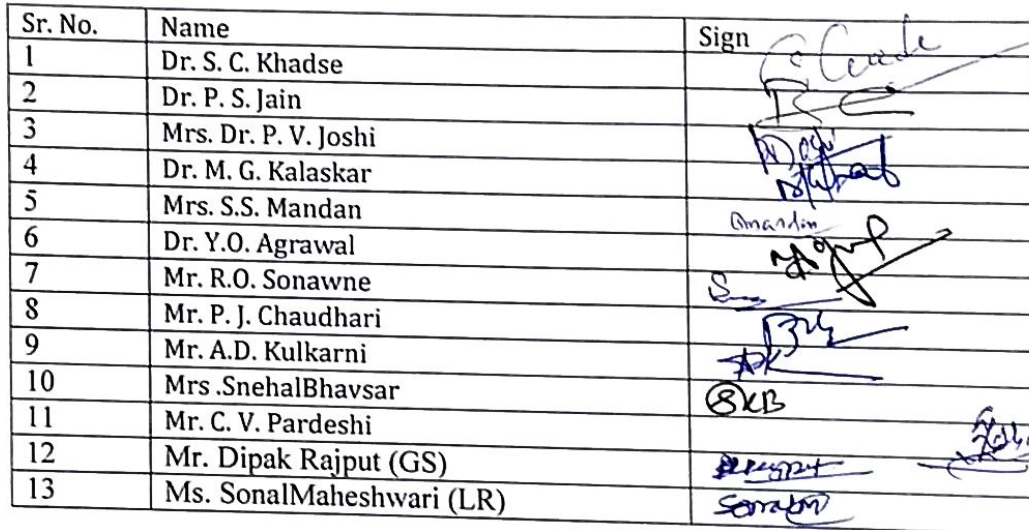 Sr. No. Name Sign
1 Dr. S. C. Khadse
2 Dr. P. S. Jain
3 Mrs. Dr. P. V. Joshi
4 Dr. M. G. Kalaskar
5 Mrs. S.S. Mandan
6 Dr. Y.O. Agrawal
7 Mr. R.O. Sonawne
8 Mr. P. J. Chaudhari
9 Mr. A.D. Kulkarni
10 Mrs .SnehalBhavsar SKB
11 Mr. C. V. Pardeshi
12 Mr. Dipak Rajput (GS)
13 Ms. SonalMaheshwari (LR)